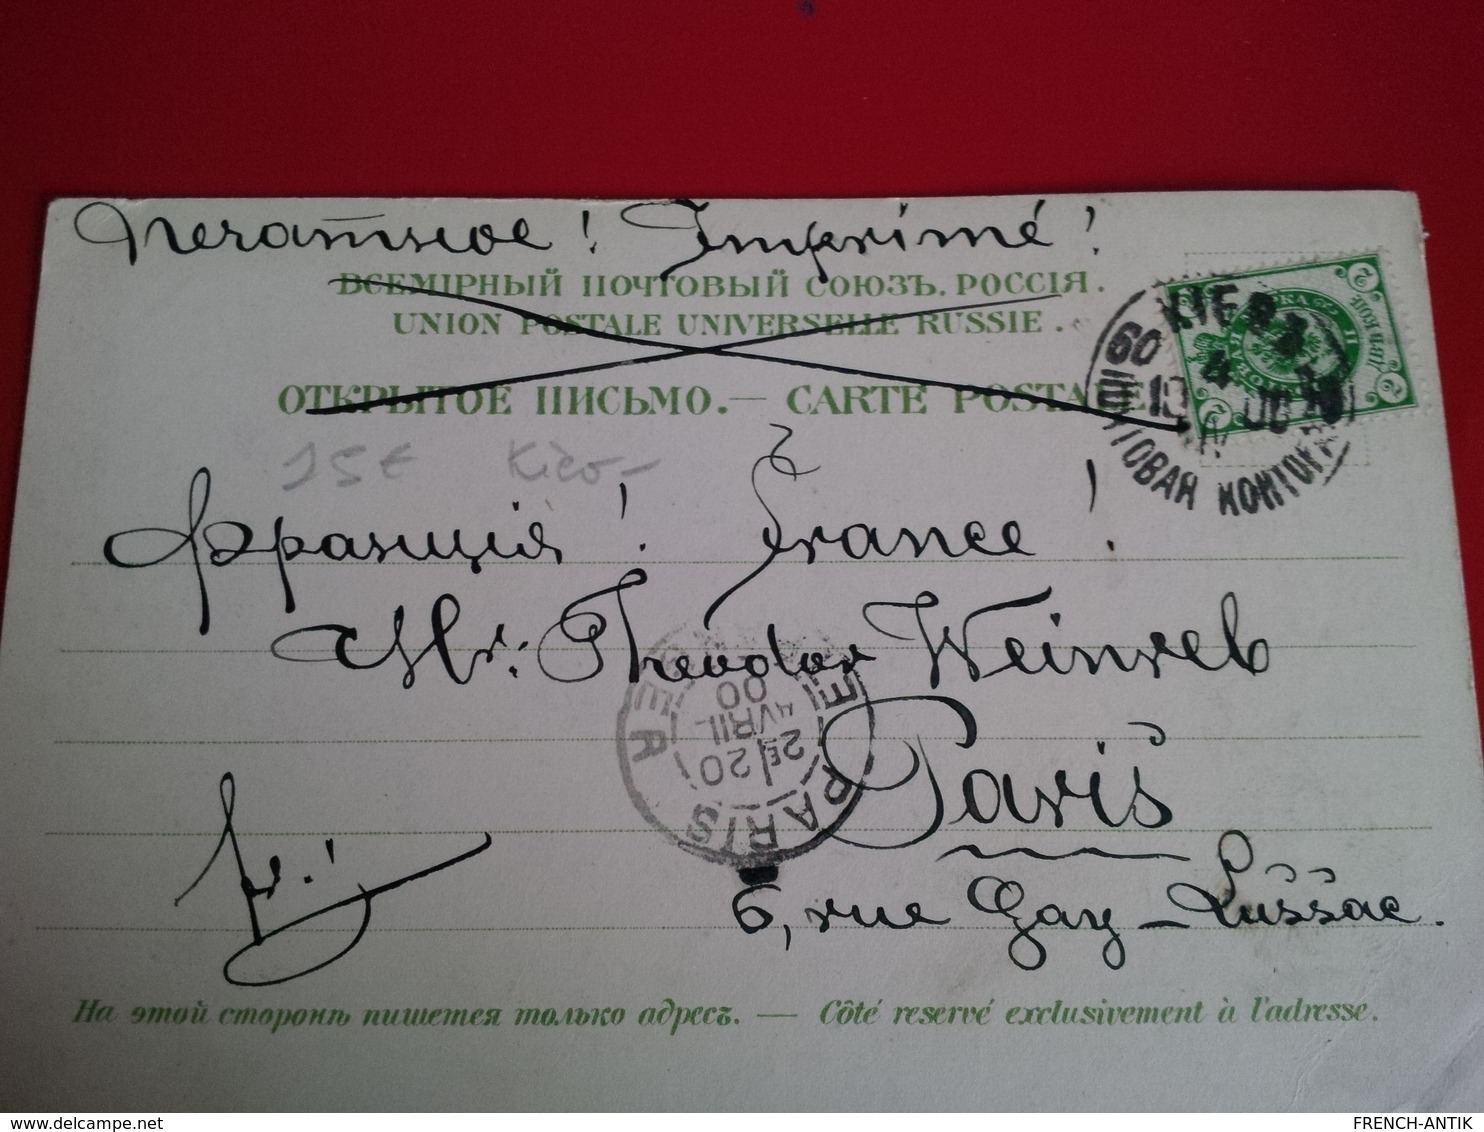 Печатное! Imprimé!
ВСЕМІРНЫЙ ПОЧТОВЫЙ СОЮЗЪ. РОССІЯ.
UNION POSTALE UNIVERSELLE RUSSIE.
ОТКРЫТОЕ ПИСЬМО.— CARTE POSTALE
КІЕВЪ
4
ПОЧТОВАЯ КОНТОРА
15€ Kiev -
Франція! France!
Mr: Theodor Weinreb
PARIS
AVRIL
00
Paris
6, rue Gay-Lussac.
На этой сторонѣ пишется только адресъ. — Côté reservé exclusivement à l'adresse.
delcampe.net
FRENCH-ANTIK